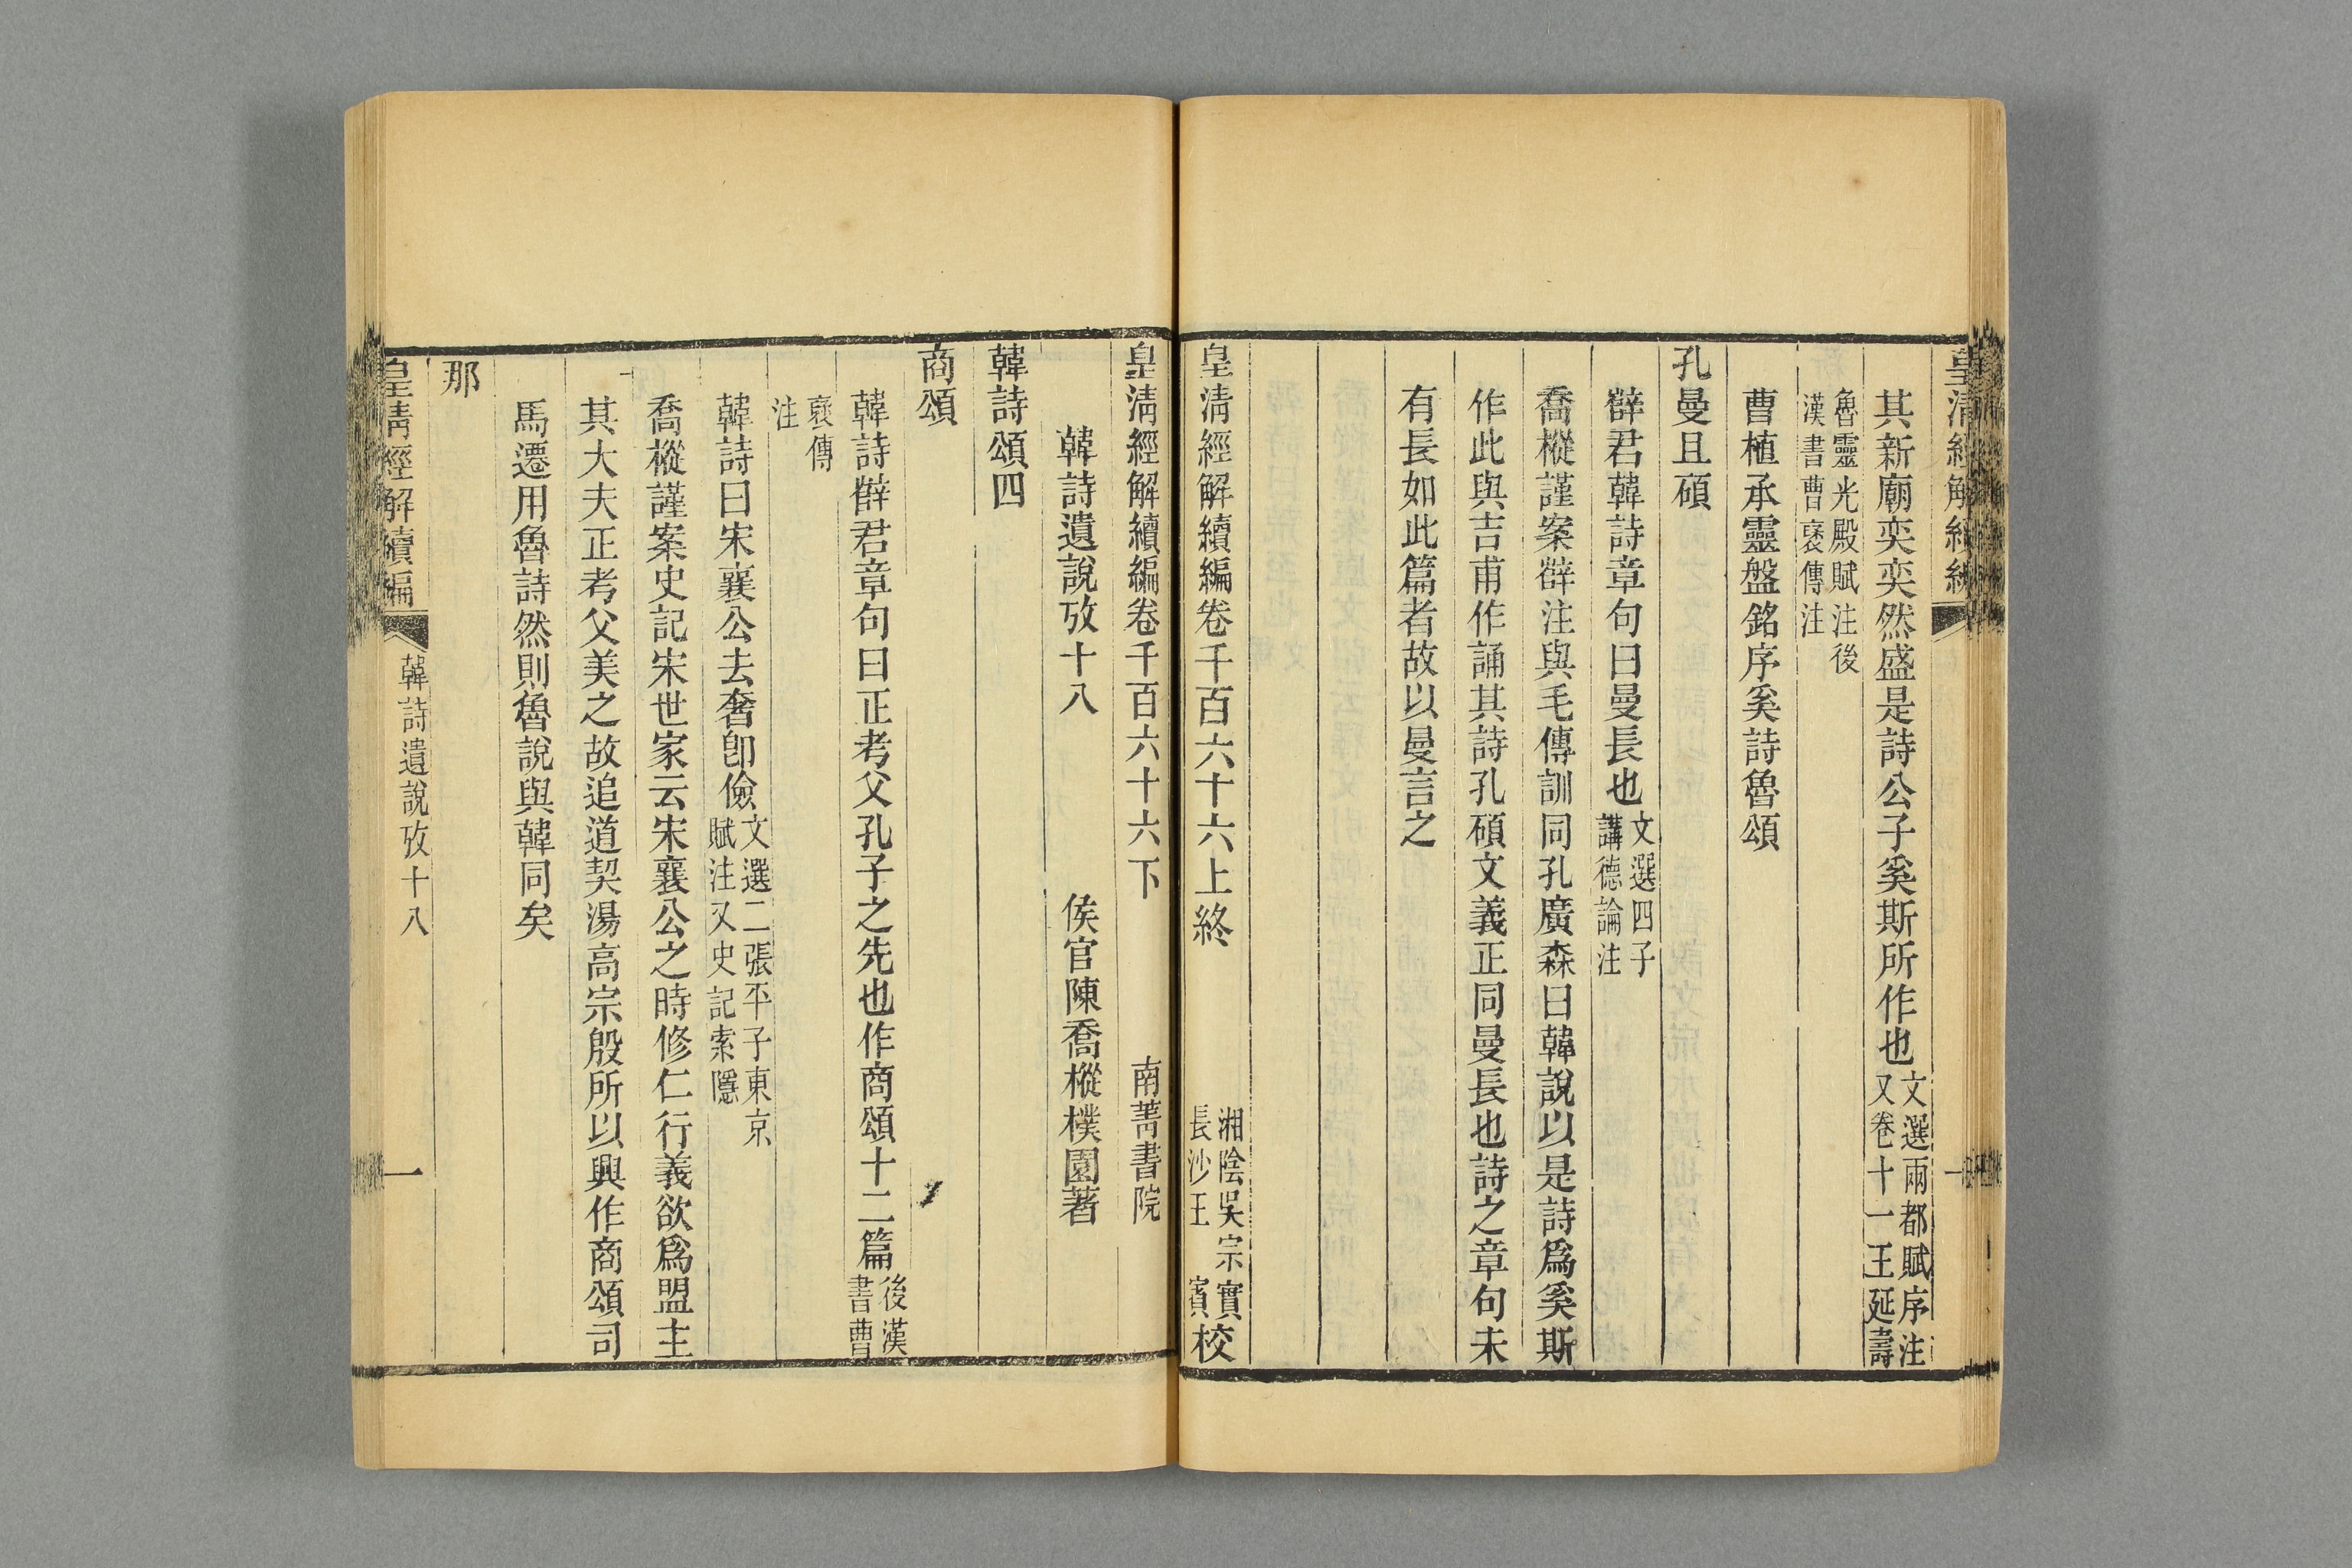 皇清經解續編
其新廟奕奕然盛是詩公子奚斯所作也文選兩都賦序注
又卷十一王延壽
魯靈光殿賦注後
漢書曹褒傳注
曹植承靈盤銘序奚詩魯頌
孔曼且碩
薛君韓詩章句曰曼長也文選四子
講德論注
喬樅謹案薛注與毛傳訓同孔廣森曰韓說以是詩爲奚斯
作此與吉甫作誦其詩孔碩文義正同曼長也詩之章句未
有長如此篇者故以曼言之
皇清經解續編卷千百六十六上終
湘陰吳宗實
長沙王 賓校
皇清經解續編卷千百六十六下
南菁書院
韓詩遺說攷十八
侯官陳喬樅樸園著
韓詩頌四
商頌
韓詩薛君章句曰正考父孔子之先也作商頌十二篇後漢
書曹
襃傳
注
韓詩曰宋襄公去奢卽儉文選二張平子東京
賦注又史記索隱
喬樅謹案史記宋世家云宋襄公之時修仁行義欲爲盟主
其大夫正考父美之故追道契湯高宗殷所以興作商頌司
馬遷用魯詩然則魯說與韓同矣
那
皇清經解續編
韓詩遺說攷十八
一